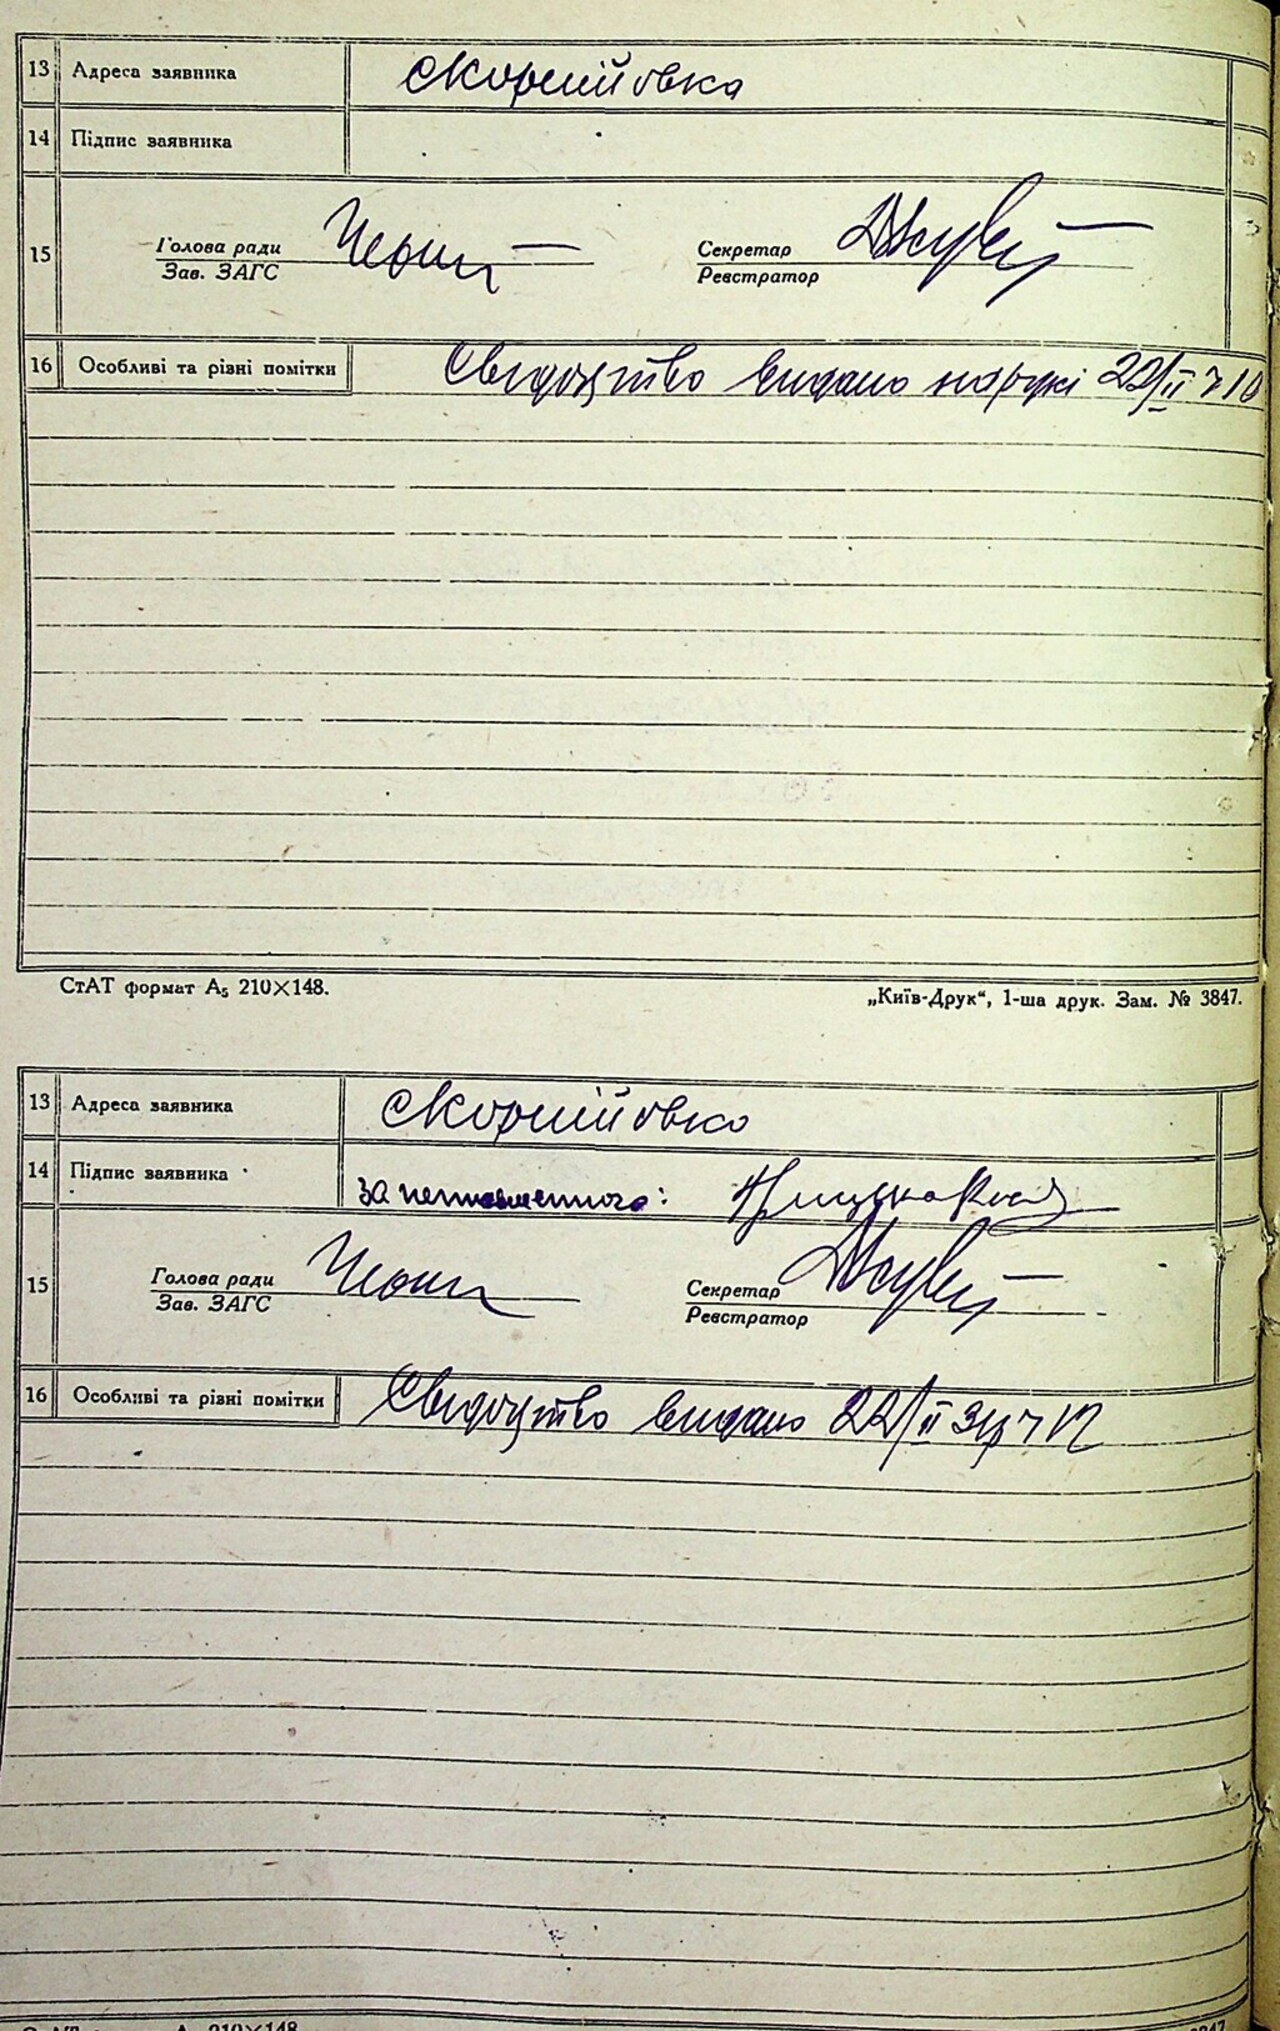 13 Адреса заявника с Корнійовка
14 Підпис заявника
15 Голова ради Секретар
Зав. ЗАГС Реєстратор
16 Особливі та різні помітки Свидоцтво видано на рукі 22/II
СтАТ формат А₅ 210×148. „Київ-Друк“, 1-ша друк. Зам. № 3847.
13 Адреса заявника с Корнійовка
14 Підпис заявника за неписьменного:
15 Голова ради Секретар
Зав. ЗАГС Реєстратор
16 Особливі та різні помітки Свидоцтво видано 22/II
210×148